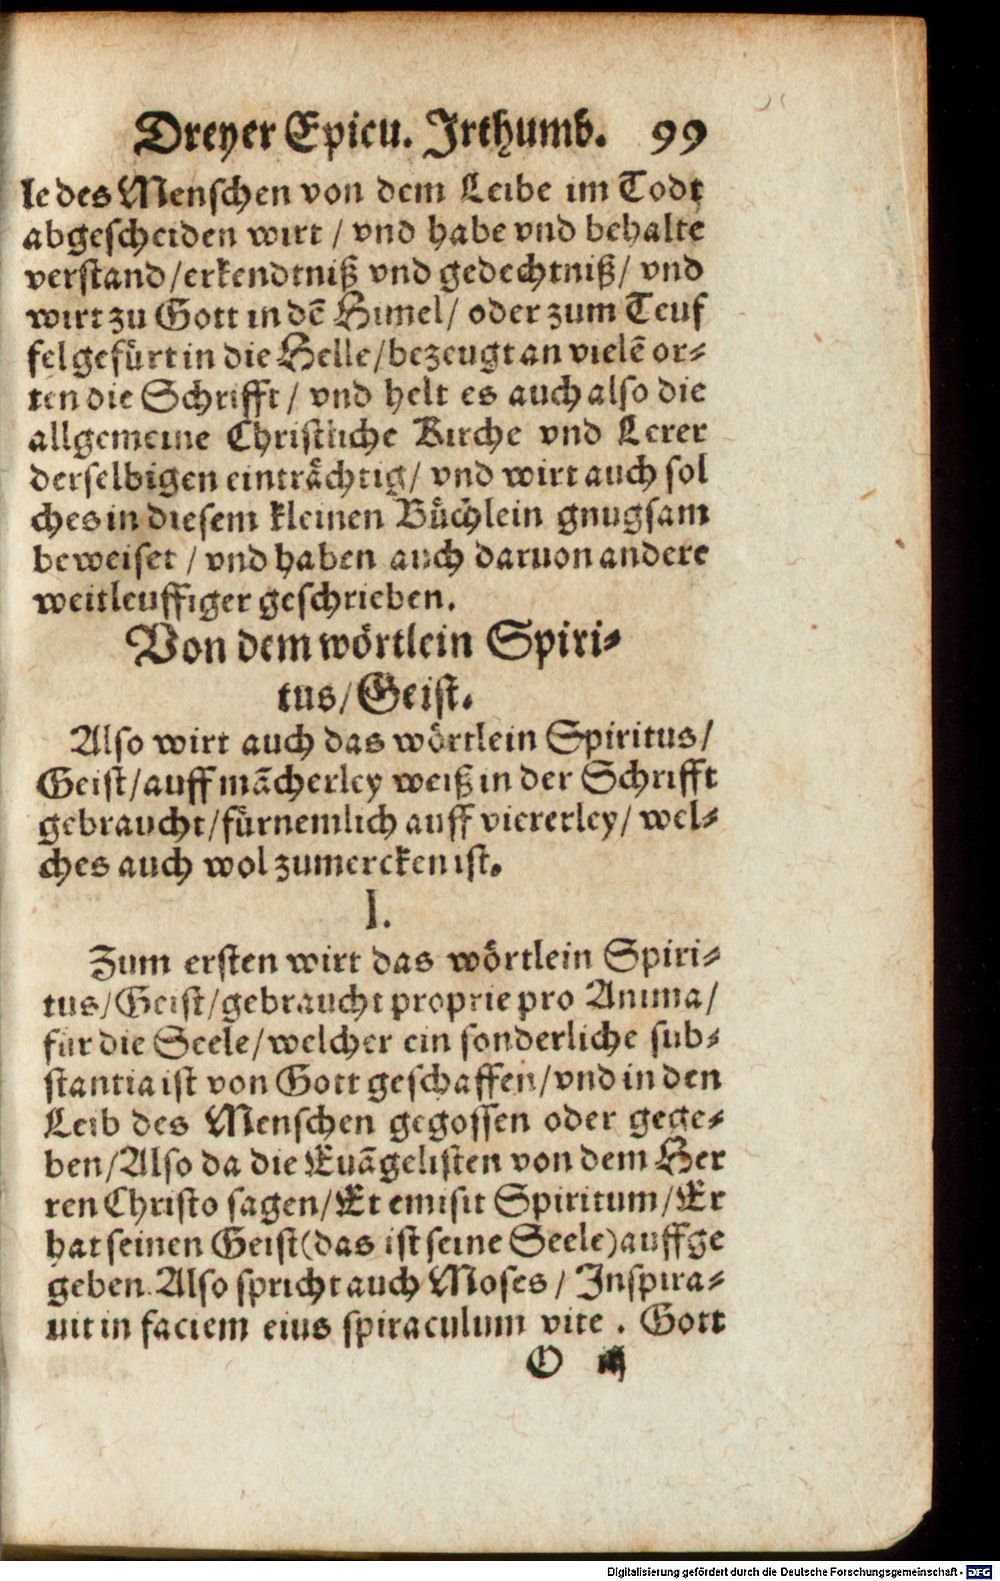 Dreyer Epicu. Irthumb. 99
le des Menschen von dem Leibe im Todt
abgescheiden wirt / vnd habe vnd behalte
verstand / erkendtniß vnd gedechtniß / vnd
wirt zu Gott in dē Himel / oder zum Teuf
fel gefürt in die Helle / bezeugt an vielē or⸗
ten die Schrifft / vnd helt es auch also die
allgemeine Christliche Kirche vnd Lerer
derselbigen einträchtig / vnd wirt auch sol
ches in diesem kleinen Büchlein gnugsam
beweiset / vnd haben auch daruon andere
weitleuffiger geschrieben.
Von dem wörtlein Spiri⸗
tus / Geist.
Also wirt auch das wörtlein Spiritus /
Geist / auff mācherley weiß in der Schrifft
gebraucht / fürnemlich auff viererley / wel⸗
ches auch wol zumercken ist.
I.
Zum ersten wirt das wörtlein Spiri⸗
tus / Geist / gebraucht proprie pro Anima /
für die Seele / welcher ein sonderliche sub⸗
stantia ist von Gott geschaffen / vnd in den
Leib des Menschen gegossen oder gege⸗
ben / Also da die Euāgelisten von dem Her
ren Christo sagen / Et emisit Spiritum / Er
hat seinen Geist (das ist seine Seele) auffge
geben. Also spricht auch Moses / Inspira⸗
uit in faciem eius spiraculum vite . Gott
O iij
Digitalisierung gefördert durch die Deutsche Forschungsgemeinschaft - DFG